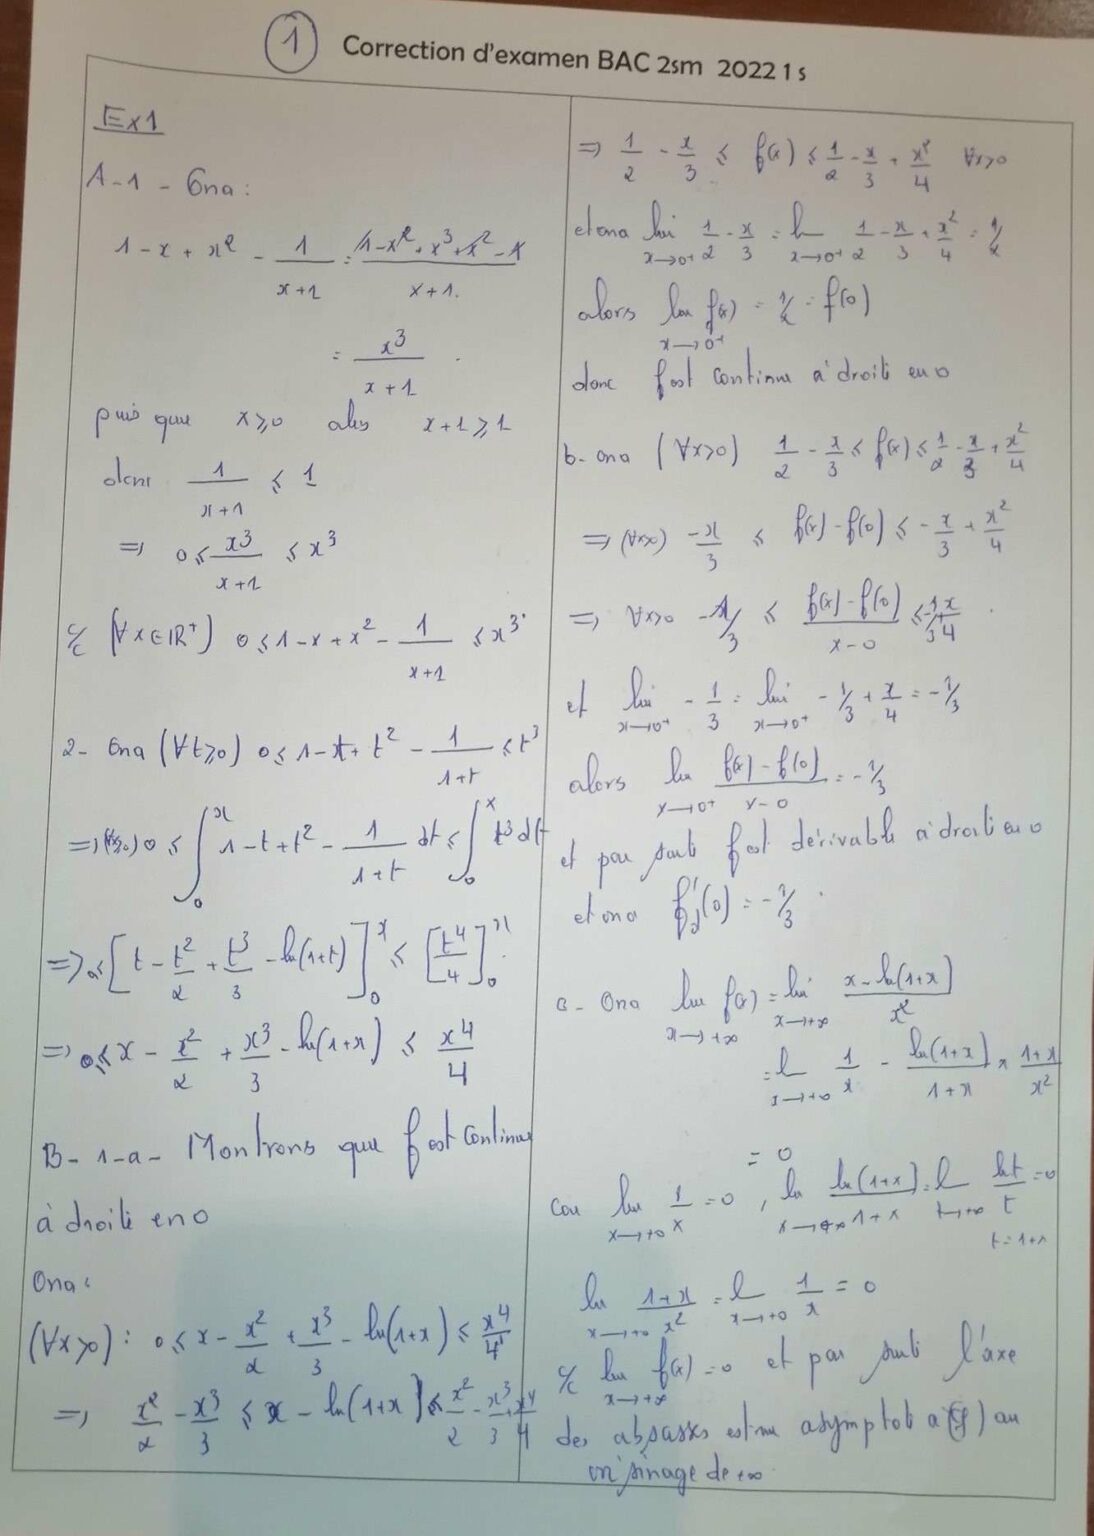 1 Correction d'examen BAC 2sm 2022 1 s
Ex1
A-1- Ona :
1 - x + x² - 1/(x+1) = (1 - x² + x³ + x² - 1)/(x+1).
= x³/(x+1) .
puis que x ⩾ 0 alors x+1 ⩾ 1
donc 1/(x+1) ⩽ 1
⇒ 0 ⩽ x³/(x+1) ⩽ x³
c/c (∀x∈IR⁺) 0 ⩽ 1 - x + x² - 1/(x+1) ⩽ x³.
2- Ona (∀t⩾0) 0 ⩽ 1 - t + t² - 1/(1+t) ⩽ t³
⇒ (∀x⩾0) 0 ⩽ ∫₀ˣ 1 - t + t² - 1/(1+t) dt ⩽ ∫₀ˣ t³ dt
⇒ 0 ⩽ [t - t²/2 + t³/3 - ln(1+t)]₀ˣ ⩽ [t⁴/4]₀ˣ
⇒ 0 ⩽ x - x²/2 + x³/3 - ln(1+x) ⩽ x⁴/4
B- 1-a- Montrons que f est continue
à droite en 0
Ona :
(∀x>0) : 0 ⩽ x - x²/2 + x³/3 - ln(1+x) ⩽ x⁴/4
⇒ x²/2 - x³/3 ⩽ x - ln(1+x) ⩽ x²/2 - x³/3 + x⁴/4
⇒ 1/2 - x/3 ⩽ f(x) ⩽ 1/2 - x/3 + x²/4 ∀x>0
et ona lim x→0⁺ 1/2 - x/3 = lim x→0⁺ 1/2 - x/3 + x²/4 = 1/2
alors lim x→0⁺ f(x) = 1/2 = f(0)
donc f est continue à droite en 0
b- ona (∀x>0) 1/2 - x/3 ⩽ f(x) ⩽ 1/2 - x/3 + x²/4
⇒ (∀x>0) -x/3 ⩽ f(x) - f(0) ⩽ -x/3 + x²/4
⇒ ∀x>0 -1/3 ⩽ (f(x) - f(0))/(x-0) ⩽ -1/3 + x/4 .
et lim x→0⁺ -1/3 = lim x→0⁺ -1/3 + x/4 = -1/3
alors lim x→0⁺ (f(x) - f(0))/(x-0) = -1/3
et par suite f est dérivable à droite en 0
et ona f'd(0) = -1/3 .
c- Ona lim x→+∞ f(x) = lim x→+∞ (x - ln(1+x))/x²
= lim x→+∞ 1/x - ln(1+x)/(1+x) × (1+x)/x²
= 0
car lim x→+∞ 1/x = 0 , lim x→+∞ ln(1+x)/(1+x) = lim t→+∞ ln t/t = 0
t = 1+x
lim x→+∞ (1+x)/x² = lim x→+∞ 1/x = 0
c/c lim x→+∞ f(x) = 0 et par suite l'axe
des absasses est une asymptot à (Cf) au
voisinage de +∞.